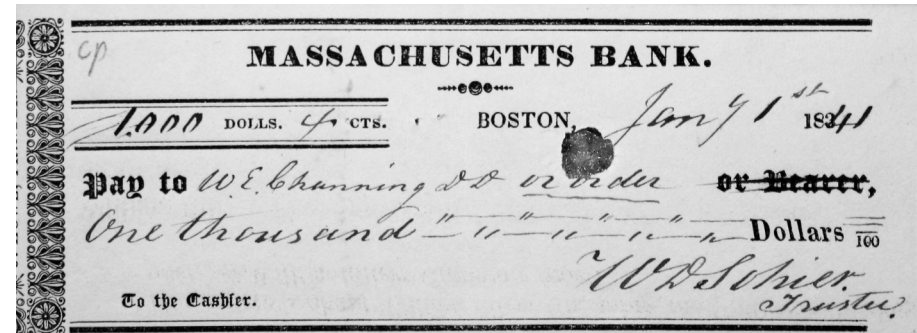 cp
MASSACHUSETTS BANK.
1,000 DOLLS. CTS. BOSTON, Jany 1st 1841
Pay to W. E. Channing D D or order or Bearer,
One thousand " " " " " " " " " Dollars /100
W D Sohier
Trustee.
To the Cashier.